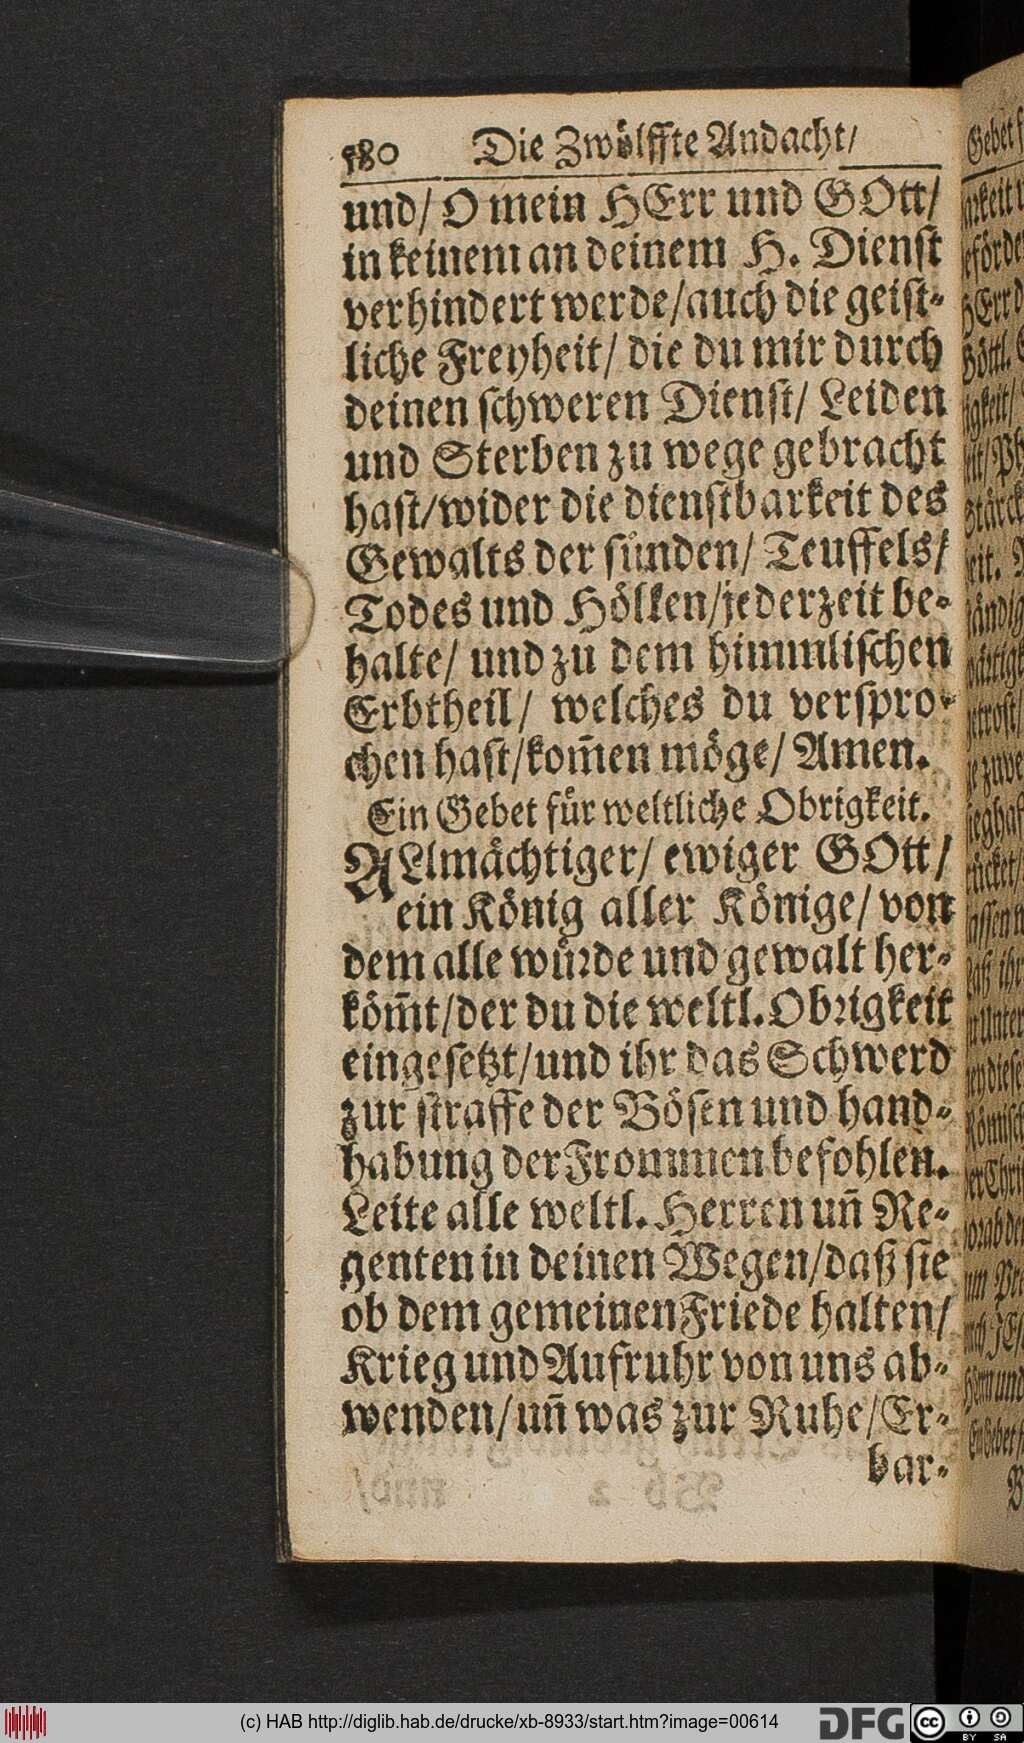 580 Die Zwölffte Andacht/
und/ O mein HErr und GOtt/
in keinem an deinem H. Dienst
verhindert werde/auch die geist-
liche Freyheit/ die du mir durch
deinen schweren Dienst/ Leiden
und Sterben zu wege gebracht
hast/wider die dienstbarkeit des
Gewalts der sünden/ Teuffels/
Todes und Höllen/jederzeit be-
halte/ und zu dem himmlischen
Erbtheil/ welches du verspro-
chen hast/kom̃en möge/ Amen.
Ein Gebet für weltliche Obrigkeit.
ALlmächtiger/ ewiger GOtt/
ein König aller Könige/ von
dem alle würde und gewalt her-
köm̃t/der du die weltl. Obrigkeit
eingesetzt/und ihr das Schwerd
zur straffe der Bösen und hand-
habung der Frommen befohlen.
Leite alle weltl. Herren uñ Re-
genten in deinen Wegen/daß sie
ob dem gemeinen Friede halten/
Krieg und Aufruhr von uns ab-
wenden/ uñ was zur Ruhe/Er-
bar-
(c) HAB http://diglib.hab.de/drucke/xb-8933/start.htm?image=00614
DFG
cc BY SA